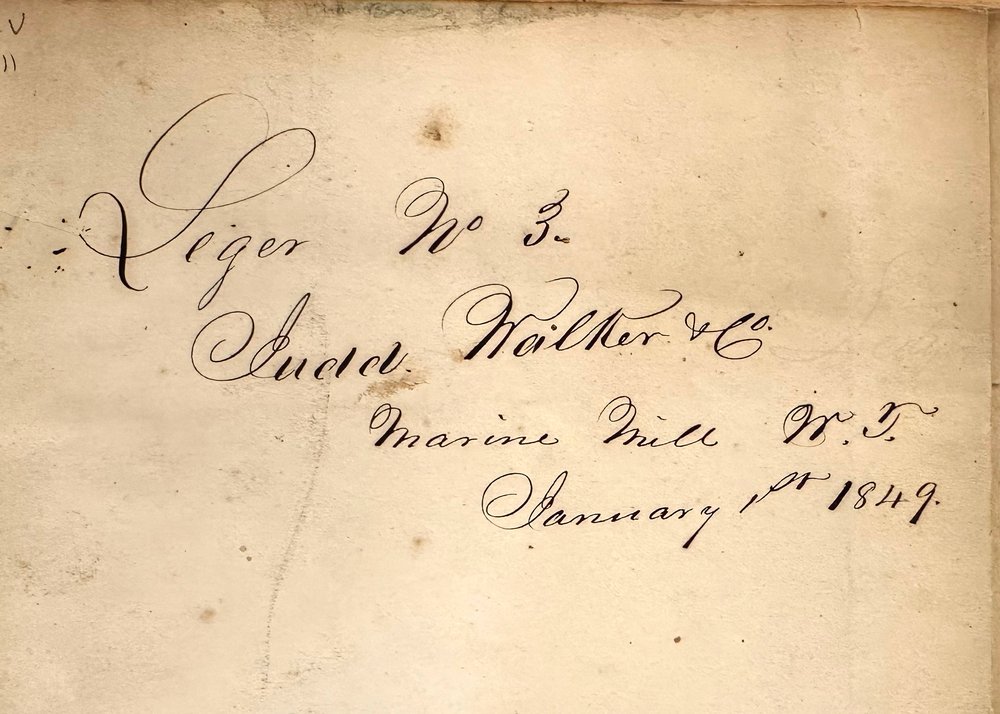 Leger No 3.
Judd. Walker & Co.
Marine Mill W. T.
January 1st 1849.